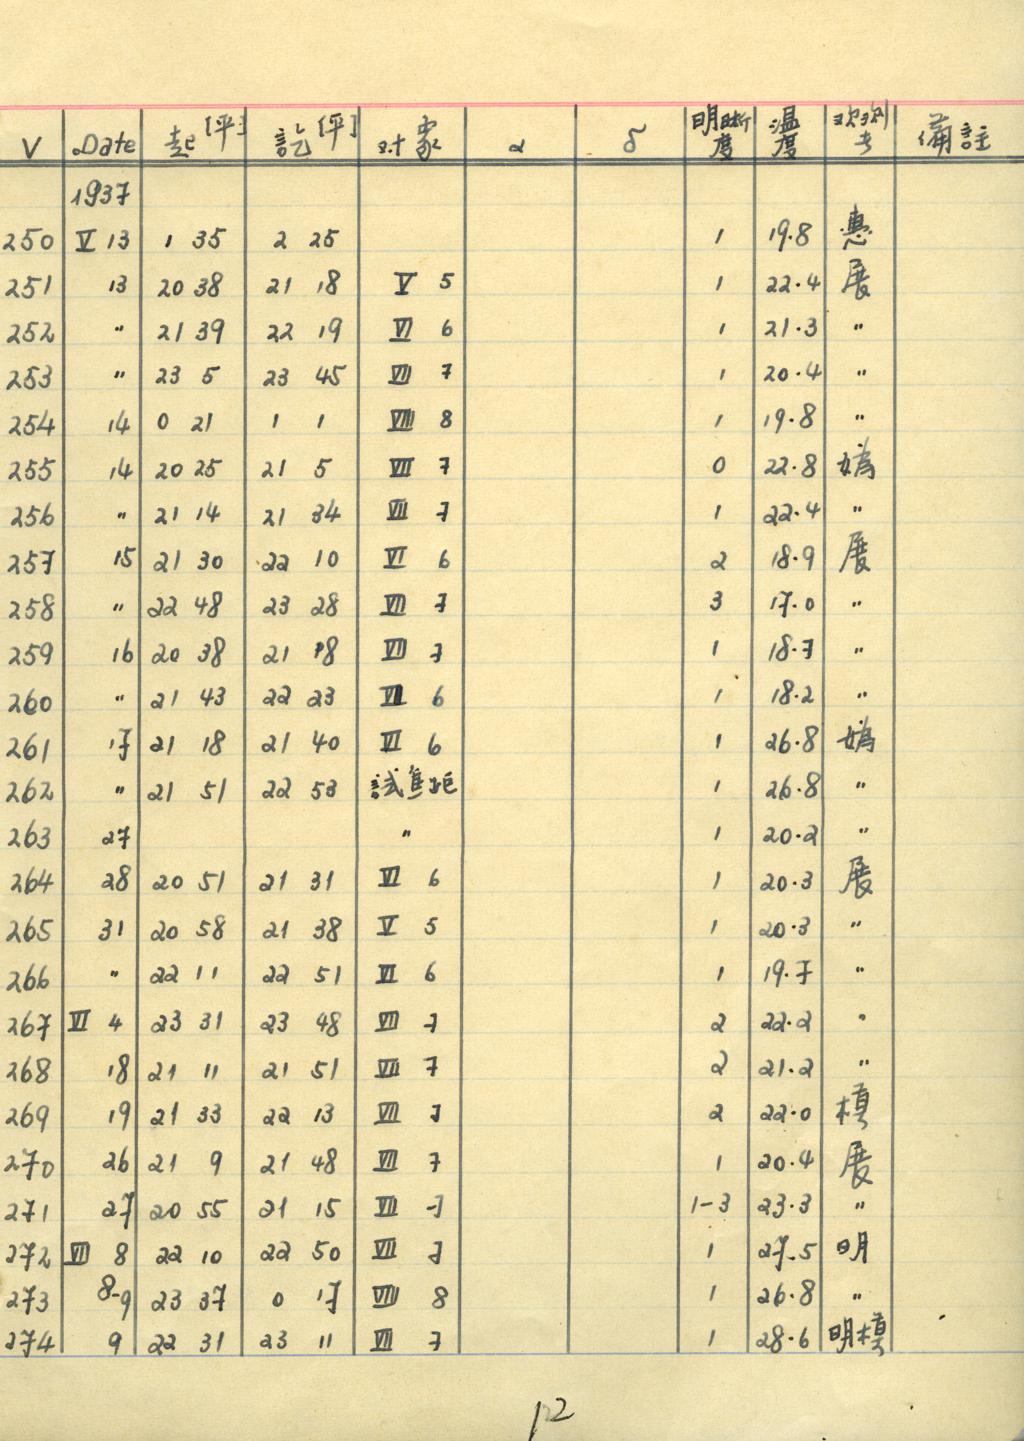 V Date 起[平] 訖[平] 対象 α δ 明晰度 温度 観測者 備註
1937
250 V 13 1 35 2 25 1 19.8 惠
251 13 20 38 21 18 V 5 1 22.4 展
252 〃 21 39 22 19 VI 6 1 21.3 〃
253 〃 23 5 23 45 VII 7 1 20.4 〃
254 14 0 21 1 1 VIII 8 1 19.8 〃
255 14 20 25 21 5 VII 7 0 22.8 嬀
256 〃 21 14 21 34 VII 7 1 22.4 〃
257 15 21 30 22 10 VI 6 2 18.9 展
258 〃 22 48 23 28 VII 7 3 17.0 〃
259 16 20 38 21 18 VII 7 1 18.7 〃
260 〃 21 43 22 23 6 1 18.2 〃
261 17 21 18 21 40 VI 6 1 26.8 嬀
262 〃 21 51 22 53 試焦距 1 26.8 〃
263 27 〃 1 20.2 〃
264 28 20 51 21 31 VI 6 1 20.3 展
265 31 20 58 21 38 V 5 1 20.3 〃
266 〃 22 11 22 51 VI 6 1 19.7 〃
267 VI 4 23 31 23 48 VII 7 2 22.2 〃
268 18 21 11 21 51 VII 7 2 21.2 〃
269 19 21 33 22 13 VII 7 2 22.0 模
270 26 21 9 21 48 VII 7 1 20.4 展
271 27 20 55 21 15 VII 7 1-3 23.3 〃
272 VII 8 22 10 22 50 VII 7 1 27.5 明
273 8-9 23 37 0 17 VIII 8 1 26.8 〃
274 9 22 31 23 11 VII 7 1 28.6 明模
12